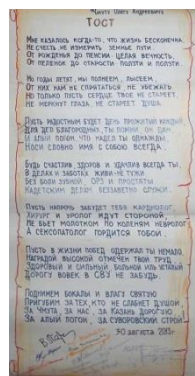 Чмуту Олегу Андреевичу
ТОСТ
Мне казалось когда-то, что жизнь бесконечна,
Не счесть, не измерить земные пути
От рождения до пенсии целая вечность,
От пеленок до старости ползти и ползти.
Но годы летят, мы полнеем, лысеем,
От них нам не спрятаться, не убежать
Но только пусть сердце твое не стареет,
Не меркнут глаза, не стареет душа.
Пусть радостным будет день прожитый каждый,
Для дел благородных, ты помни, он дан,
И алый погон, что надел ты однажды
Носи словно имя с собою всегда.
Будь счастлив, здоров и удачлив всегда ты,
В делах и заботах живи-не тужи
Без боли зубной, ОРЗ и простаты
Кадетским делам беззаветно служи.
Пусть напрочь забудет тебя кардиолог,
Хирург и уролог идут стороной,
Не бьет молотком по коленям невролог
А сексопатолог гордится тобой.
Пусть в жизни побед одержал ты немало
Наградой высокой отмечен твой труд,
Здоровый и сильный, больной иль усталый
Дорогу вовек в СВУ не забудь.
Поднимем бокалы и влагу святую
Пригубим за тех, кто не слабнет душой
За Чмута, за нас, за Казань дорогую
За алый погон, за суворовский строй.
30 августа 2013г